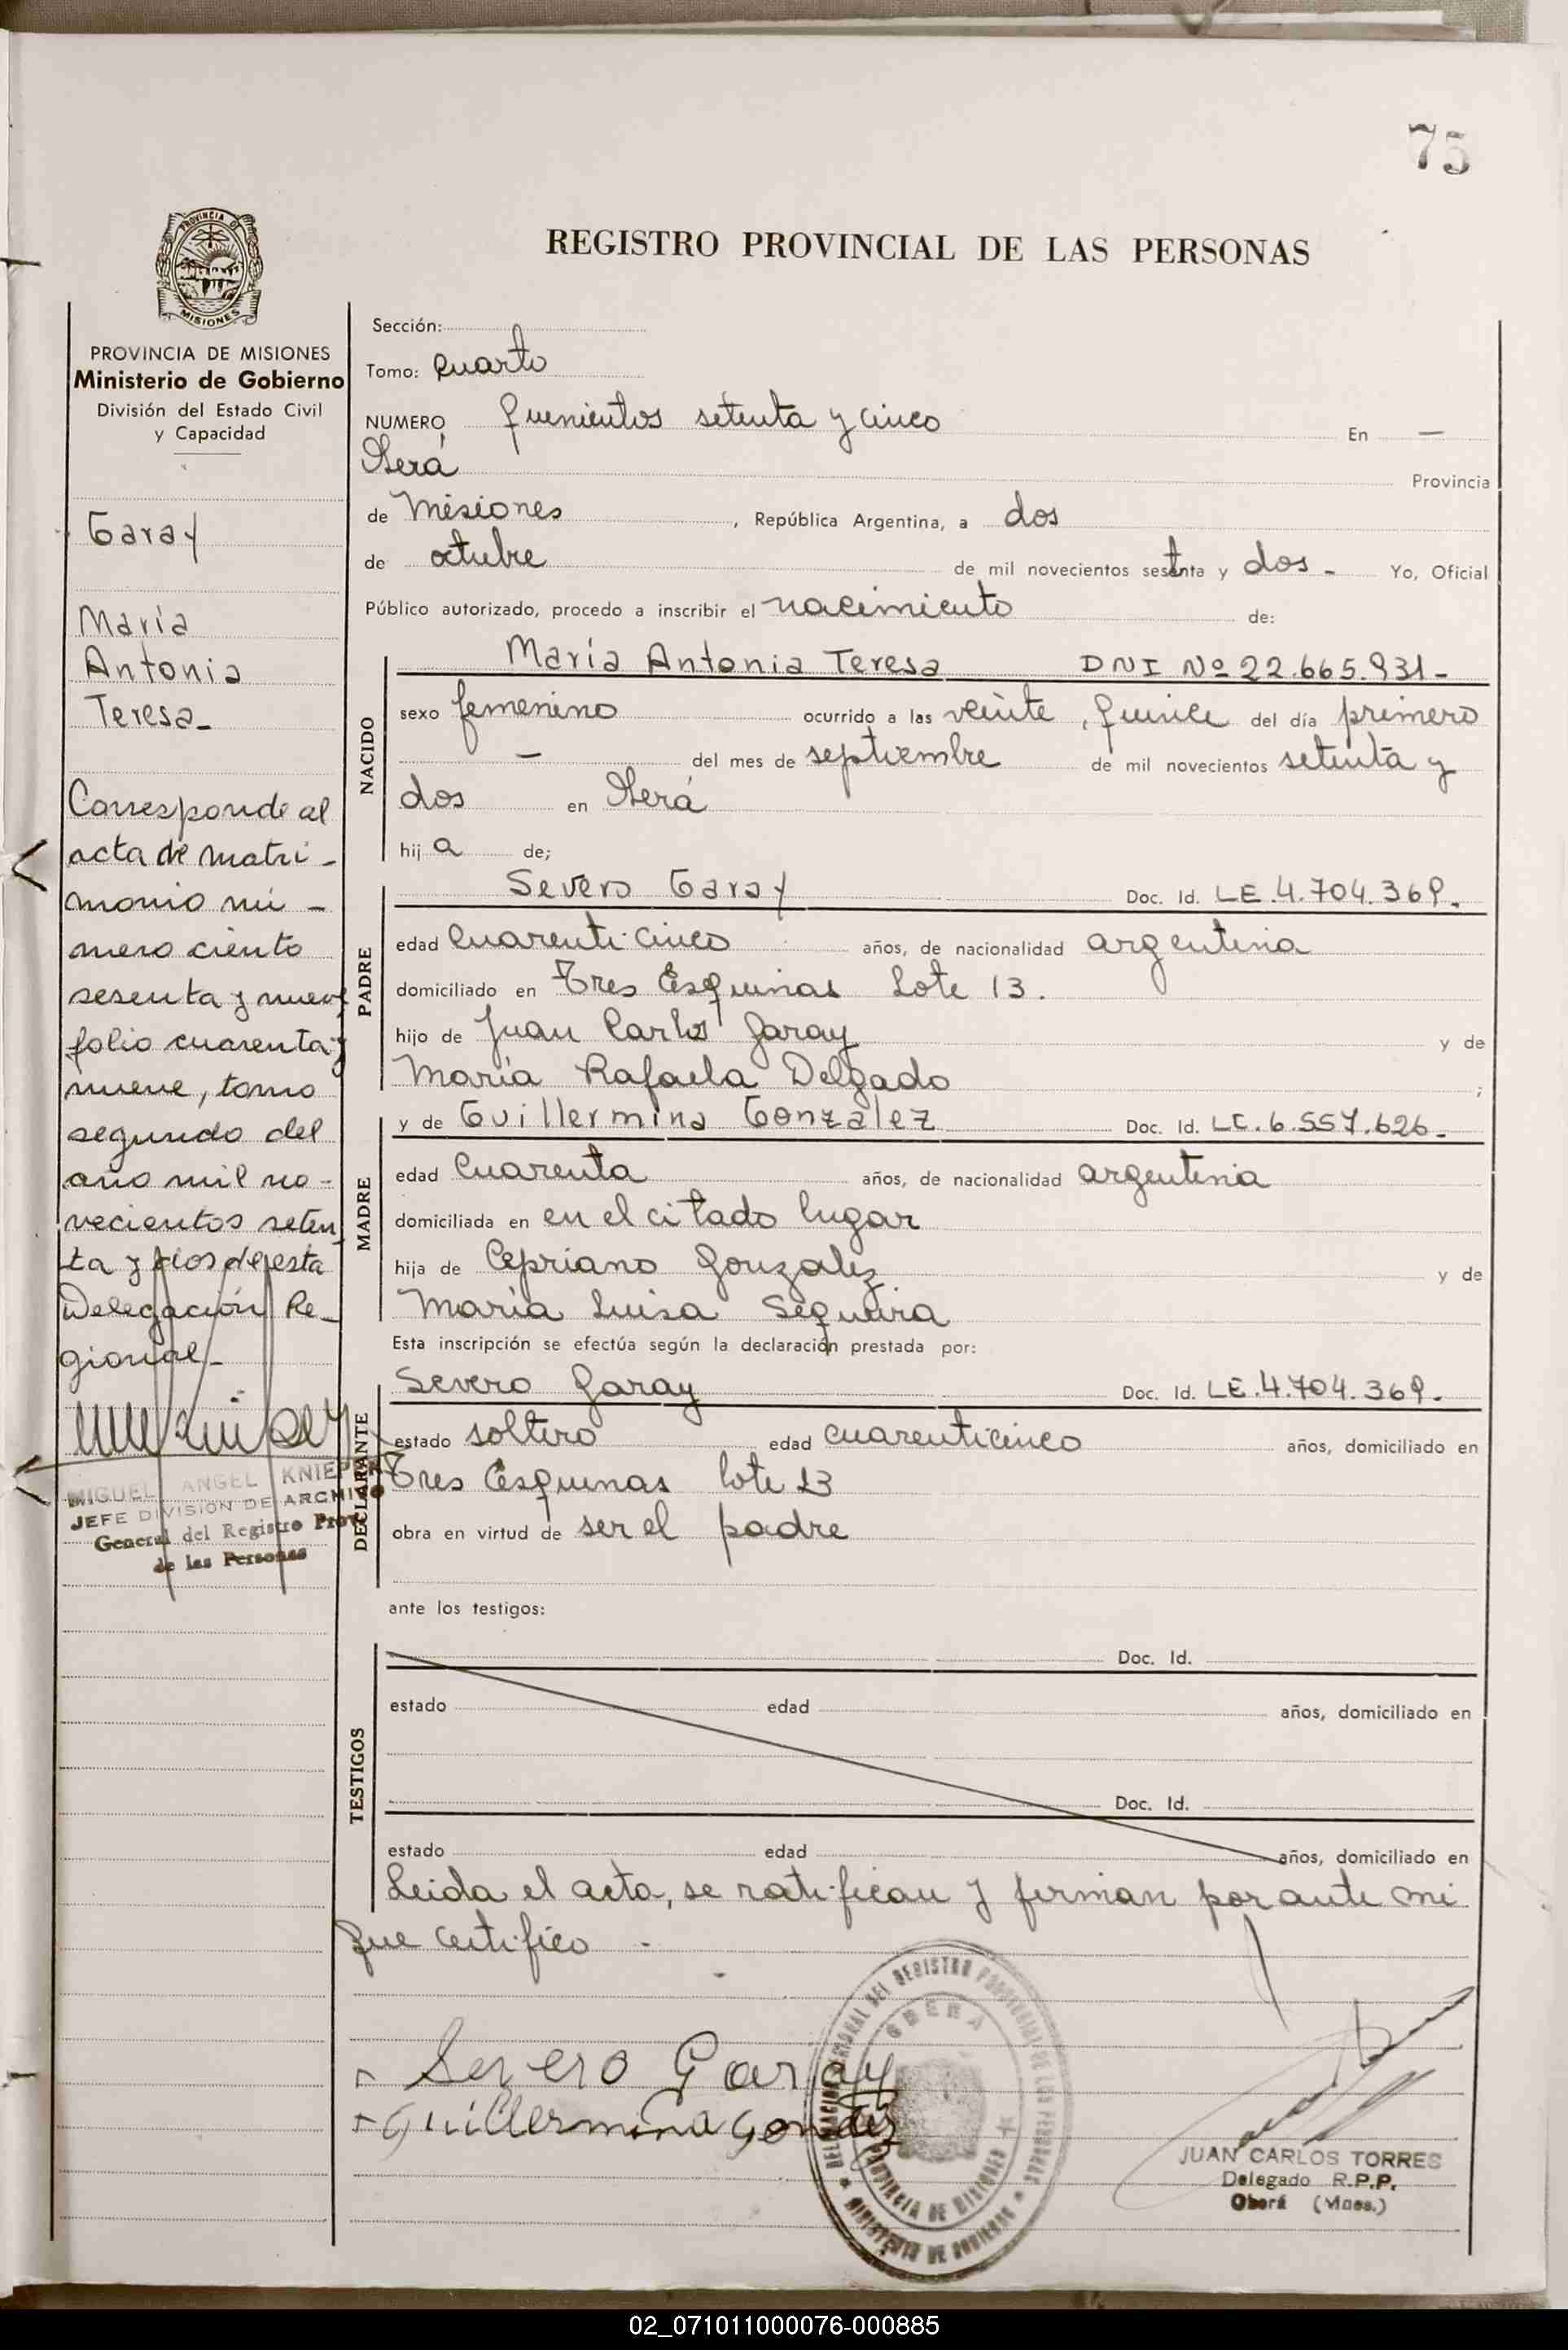 75
PROVINCIA DE
MISIONES
REGISTRO PROVINCIAL DE LAS PERSONAS
PROVINCIA DE MISIONES
Ministerio de Gobierno
División del Estado Civil
y Capacidad
Garay
María
Antonia
Teresa-
Corresponde al
acta de matri-
monio nú-
mero ciento
sesenta y nueve,
folio cuarenta y
nueve, tomo
segundo del
año mil no-
vecientos seten
ta y dos de esta
Delegación Re-
gional-
MIGUEL ANGEL
JEFE DIVISION DE ARCHIVO
General del Registro Prov.
de las Personas
Sección:
Tomo: Cuarto
NUMERO Quinientos setenta y cinco En —
Oberá Provincia
de Misiones, República Argentina, a dos
de octubre de mil novecientos setenta y dos - Yo, Oficial
Público autorizado, procedo a inscribir el nacimiento de:
NACIDO
María Antonia Teresa DNI Nº 22.665.931-
sexo femenino ocurrido a las veinte, quince del día primero
— del mes de septiembre de mil novecientos setenta y
dos en Oberá
hij a de;
PADRE
Severo Garay Doc. Id. LE.4.704.369.
edad cuarenticinco años, de nacionalidad argentina
domiciliado en Tres Esquinas Lote 13.
hijo de Juan Carlos Garay y de
María Rafaela Delgado ;
MADRE
y de Guillermina González Doc. Id. LC.6.557.626-
edad cuarenta años, de nacionalidad argentina
domiciliada en en el citado lugar
hija de Cipriano Gonzalez y de
María Luisa Sequeira
Esta inscripción se efectúa según la declaración prestada por:
DECLARANTE
Severo Garay Doc. Id. LE.4.704.369.
estado soltero edad cuarenticinco años, domiciliado en
Tres Esquinas lote 13
obra en virtud de ser el padre
ante los testigos:
TESTIGOS
Doc. Id.
estado edad años, domiciliado en
Doc. Id.
estado edad años, domiciliado en
Leida el acta, se ratifican y firman por ante mi
que certifico -
Severo Garay
Guillermina
DELEGACION REGIONAL DEL REGISTRO PROVINCIAL DE LAS PERSONAS
OBERA
PROVINCIA DE MISIONES
MINISTERIO DE GOBIERNO
JUAN CARLOS TORRES
Delegado R.P.P.
Oberá (Mnes.)
02_071011000076-000885